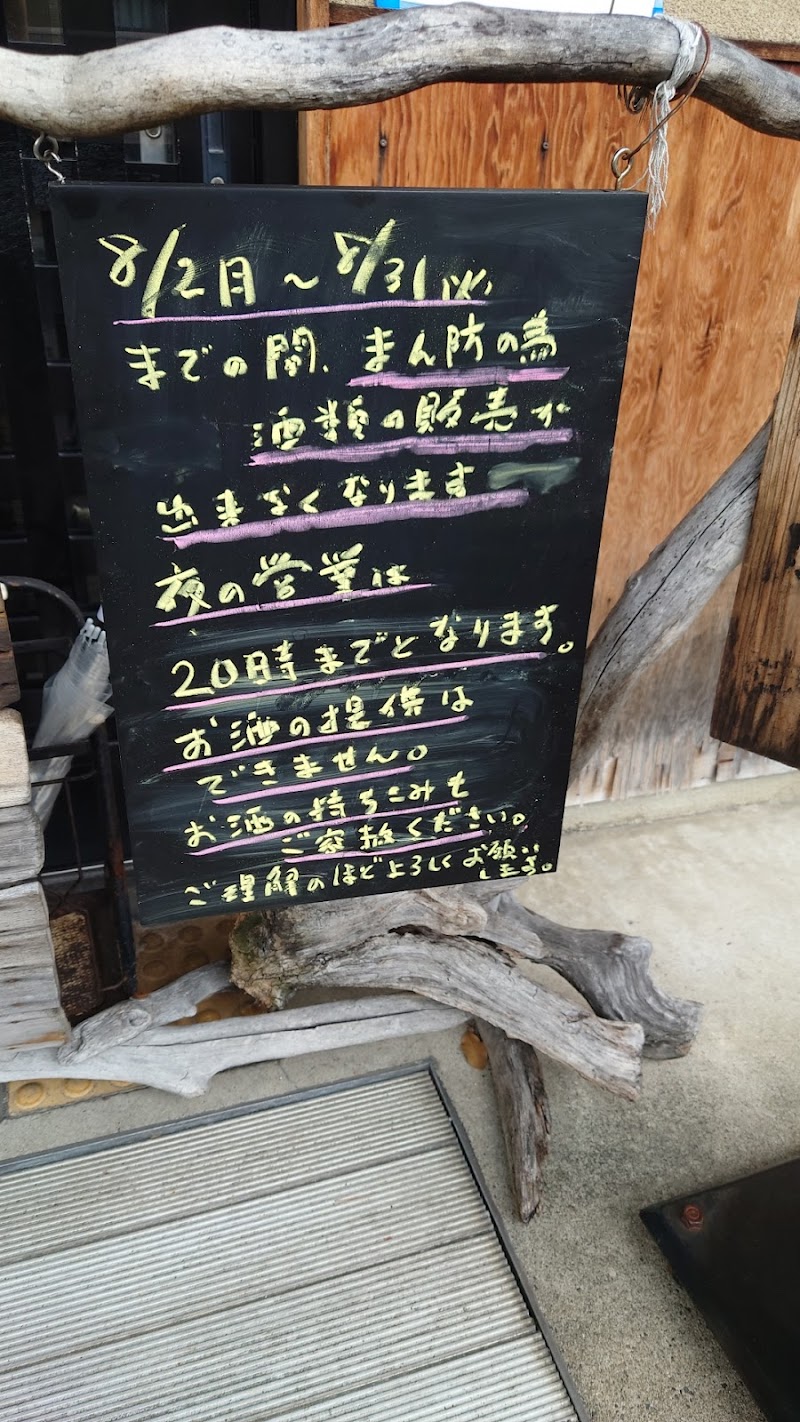 8/2月〜8/31火
までの間、まん防の為
酒類の販売が
出来なくなります
夜の営業は
20時までとなります。
お酒の提供は
できません。
お酒の持ちこみも
ご容赦ください。
ご理解のほどよろしくお願い
します。